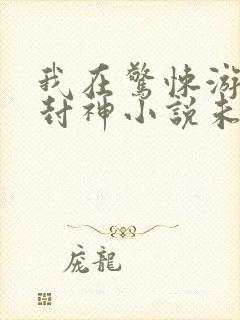 我在驚悚游
封神小說未
龐龍